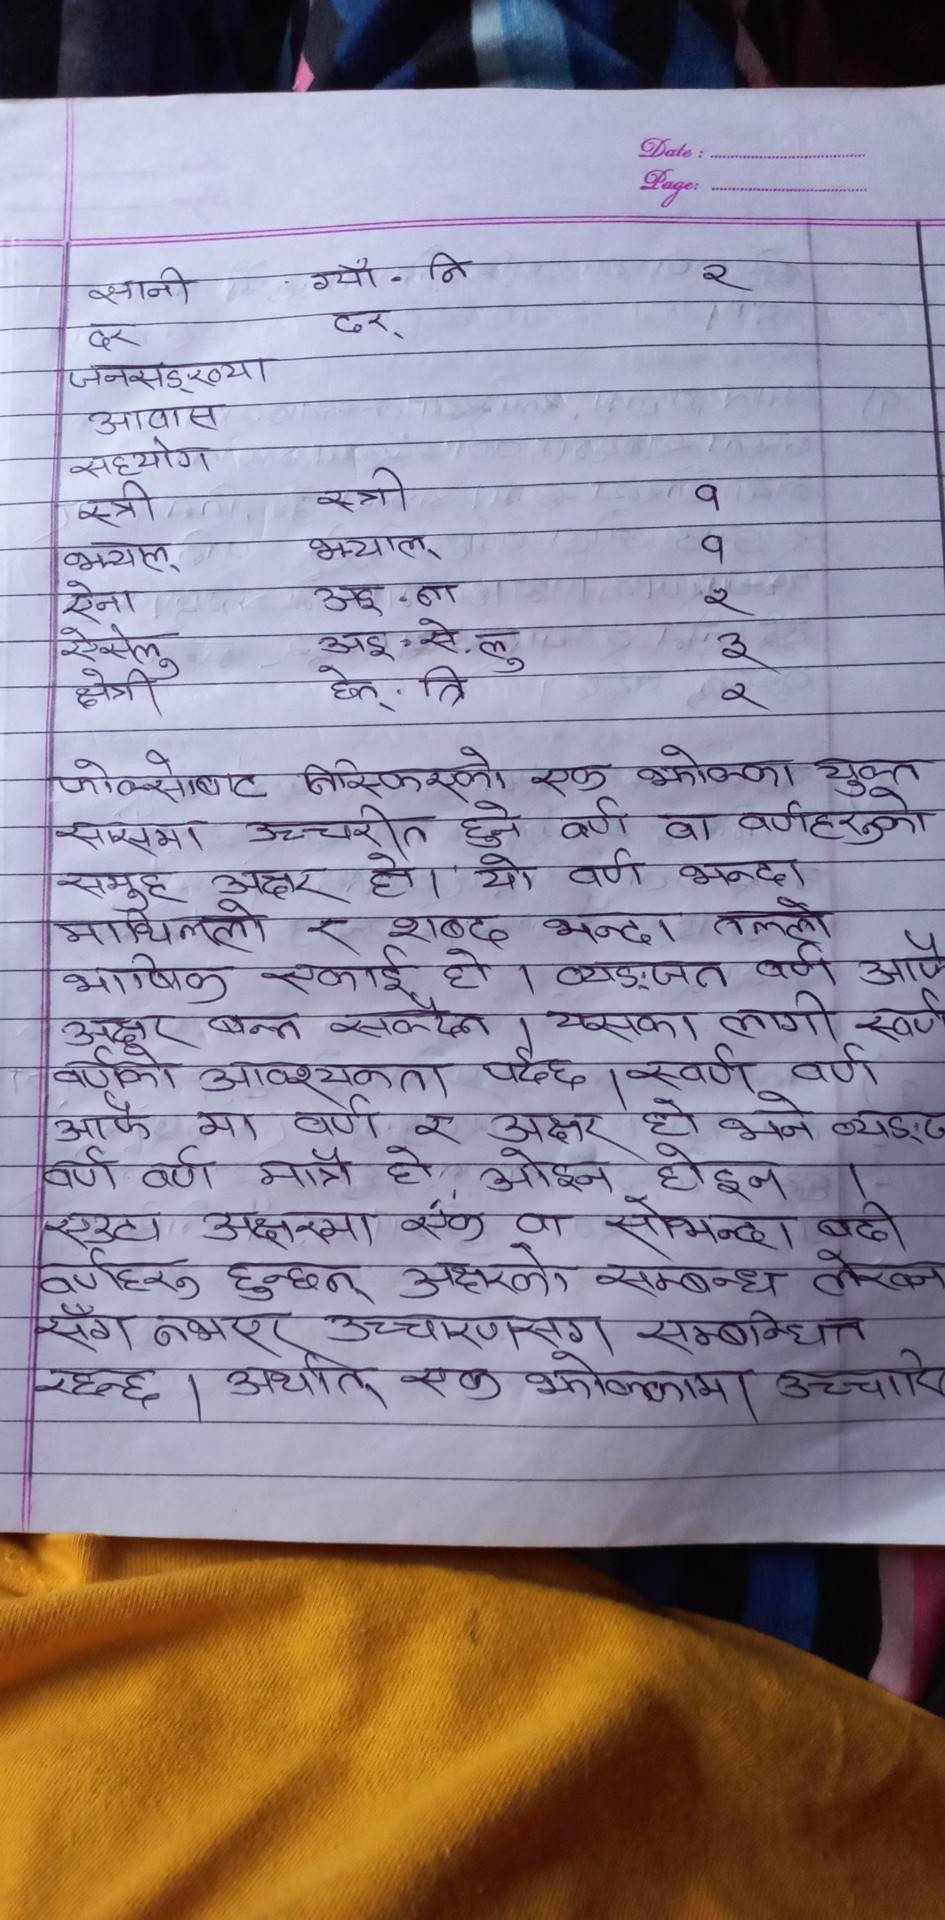 Date :
Page:
ज्ञानी ग्याँ - नि २
दर दर्
जनसङ्ख्या
आवास
सहयोग
स्त्री स्त्री १
झ्याल् झ्याल् १
ऐना अइ - ना २
ऐसेलु अइ - से. लु ३
क्षेत्री छेत् - त्रि २
फोक्सोबाट निस्किएको एक झोक्का युक्त
सासमा उच्चरीत हुने वर्ण वा वर्णहरुको
समुह अक्षर हो। यो वर्ण भन्दा
माथिल्लो र शब्द भन्दा तल्लो
भाषिक एकाई हो । व्यङ्जन वर्ण आफै
अक्षर बन्न सक्दैन । यसका लागी स्वर्ण
वर्णको आवश्यकता पर्दछ । स्वर्ण वर्ण
आफै मा वर्ण र अक्षर हो भने व्यङ्ज
वर्ण वर्ण मात्रै हो, ओइन होइन ।
एउटा अक्षरमा एक वा सोभन्दा बढी
वर्णहरु हुन्छन् अक्षरको सम्बन्ध लेखन
सँग नभएर उच्चारणसग सम्बन्धित
रहन्छ । अर्थात् एक झोक्कामा उच्चारि